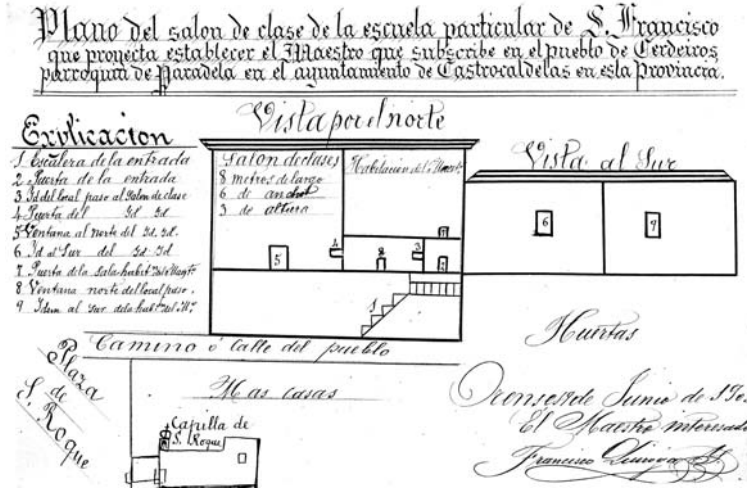 Plano del salon de clase de la escuela particular de S. Francisco
que proyecta establecer el Maestro que subscribe en el pueblo de Cerdeiros,
parroquia de Paradela en el ayuntamiento de Castrocaldelas en esta Provincia.
Explicacion
1 Escalera de la entrada
2 Puerta de la entrada
3 Id del local paso al Salon de clase
4 Puerta del Id Id
5 Ventana al norte del Id. Id.
6 Id al Sur del Id. Id
7 Puerta de la sala habit
8 Ventana norte del local paso.
9 Idem al Sur de la habt del M.
Vista por el norte
Salon de clases
8 metros de largo
6 de ancho
3 de altura
Habitacion del Maest
4
3
5
8
1
Vista al Sur
6
9
Camino ó Calle del pueblo
Huertas
Plaza
de
S. Roque
Mas casas
Capilla de
S. Roque
de Junio de
El Maestro interesado
Francisco